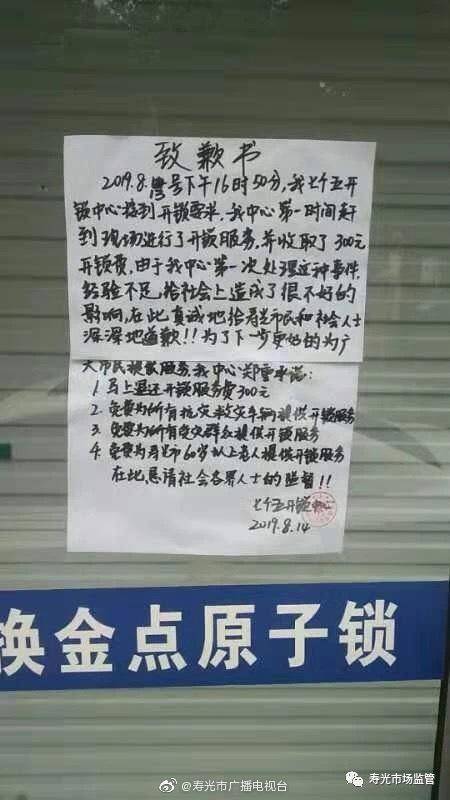 致歉书
2019.8.号下午16时50分,我七个五开
锁中心接到开锁要求,我中心第一时间赶
到现场进行了开锁服务,并收取了300元
开锁费,由于我中心第一次处理这种事件,
经验不足,给社会上造成了很不好的
影响,在此真诚地给寿光市民和社会人士
深深地道歉!!为了下一步更好的为广
大市民提供服务,我中心郑重承诺:
1.马上退还开锁服务费300元
2.免费为所有抗灾救灾车辆提供开锁服务
3.免费为所有受灾群众提供开锁服务
4.免费为寿光市60岁以上老人提供开锁服务
在此,恳请社会各界人士的监督!!
七个五开锁中心
2019.8.14
换金点原子锁
@寿光市广播电视台
寿光市场监管